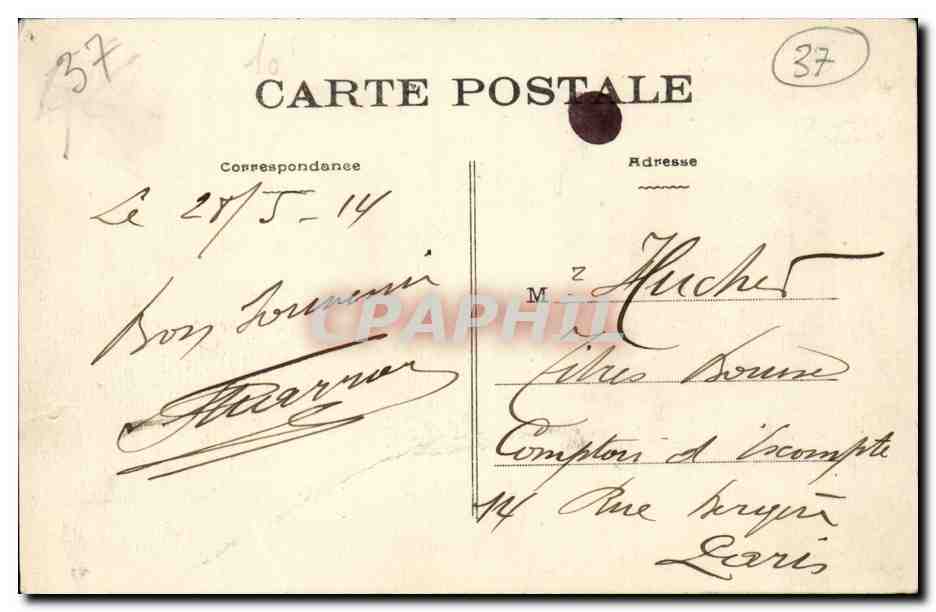 37
37
CARTE POSTALE
Correspondance
Adresse
Le 28/5-14
Bon Souvenir
Mr Huchet
Titres Bourse
Comptoir d'Escompte
14 Rue Bergère
Paris
CPAPHIL